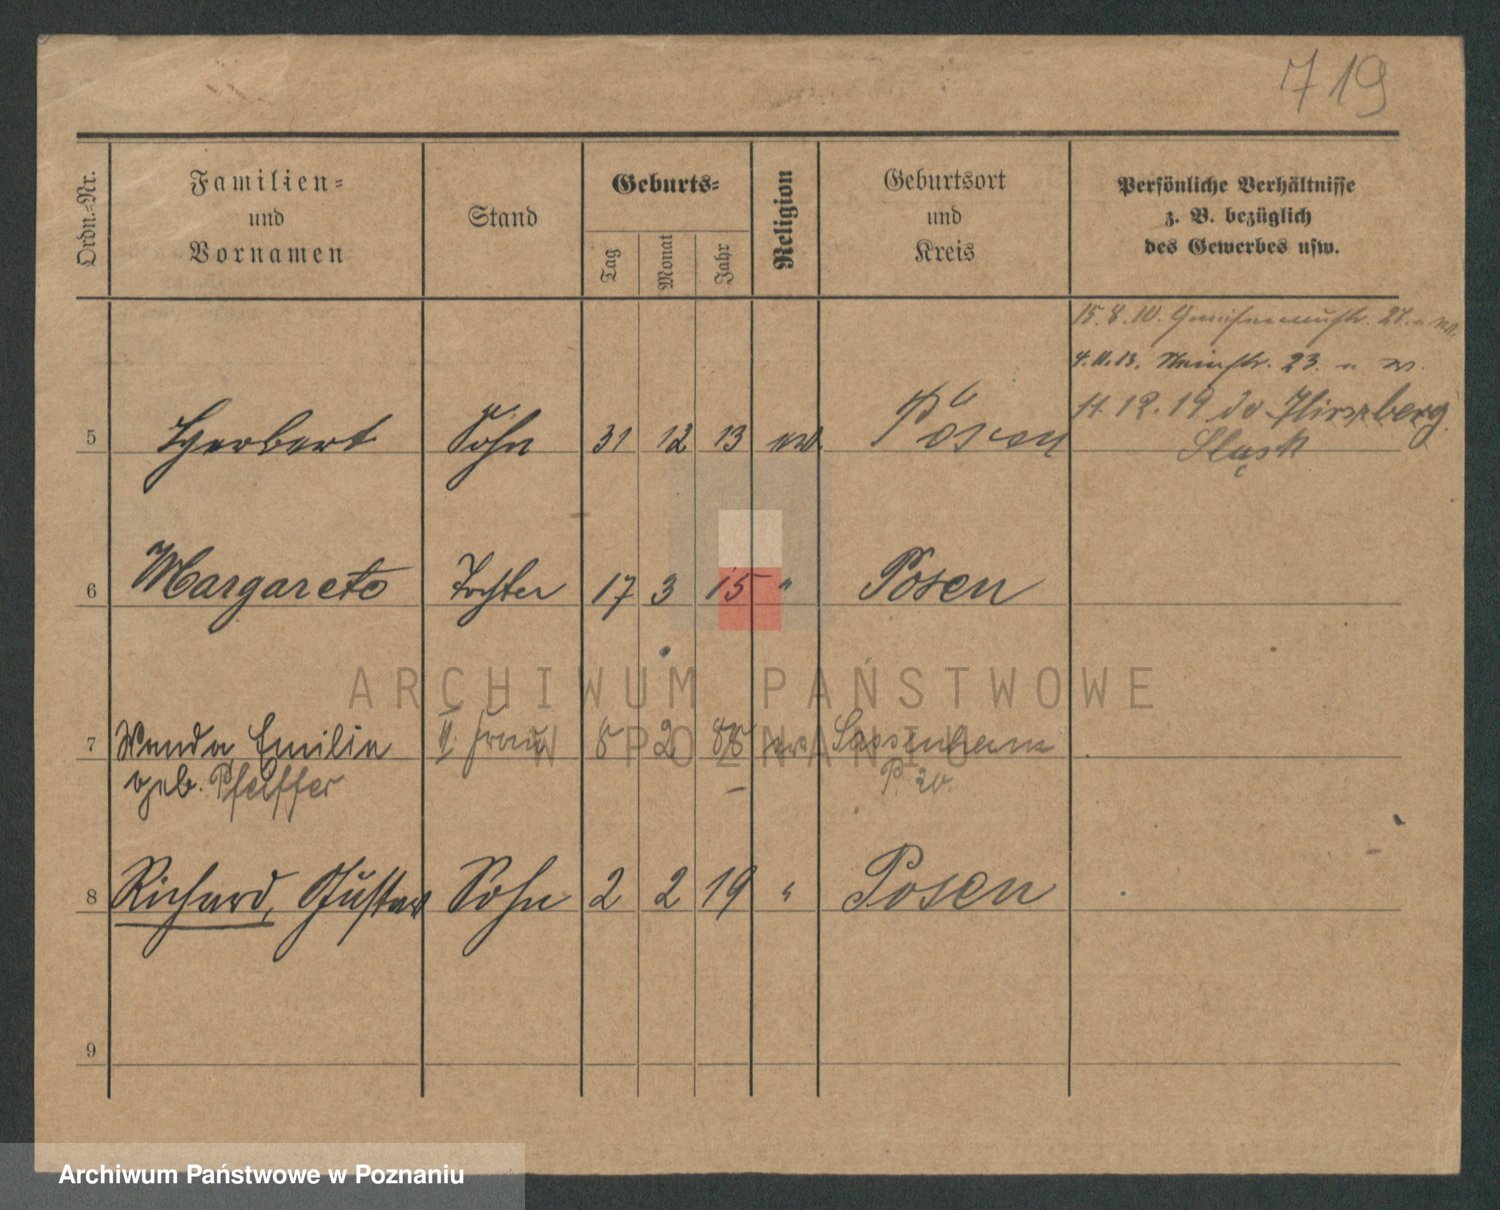 719
Ordn.-Nr.
Familien-
und
Vornamen
Stand
Geburts-
Tag
Monat
Jahr
Religion
Geburtsort
und
Kreis
Persönliche Verhältnisse
z. B. bezüglich
des Gewerbes usw.
15.8.10. Gneisenaustr. 27.
4.11.13. 23.
11.12.19 do Hirszberg
Sląsk
5 Herbert Sohn 31 12 13 ev. Posen
6 Margarete Tochter 17 3 15 " Posen
7 Wanda Emilie II. Frau 8 2 88 ev
geb. Pfeiffer
8 Richard, Gustav Sohn 2 2 19 " Posen
9
ARCHIWUM PAŃSTWOWE
W POZNANIU
Archiwum Państwowe w Poznaniu